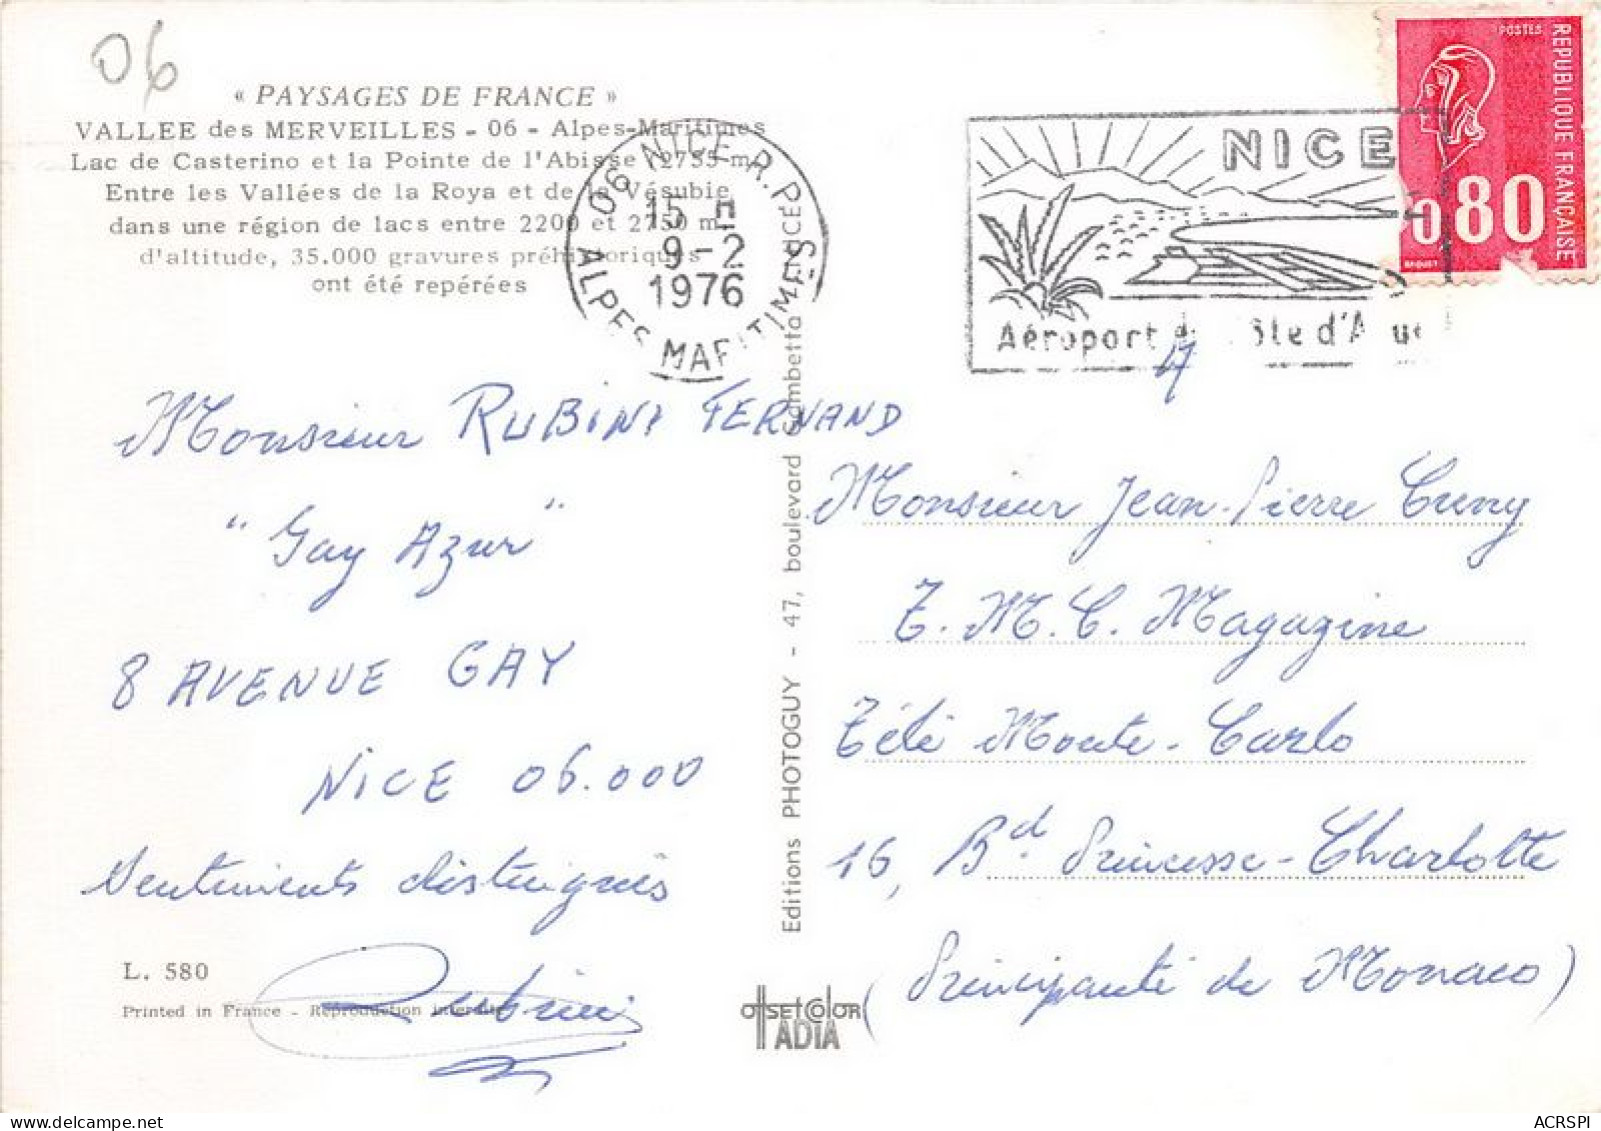 06
« PAYSAGES DE FRANCE »
VALLEE des MERVEILLES - 06 - Alpes-Maritimes
Lac de Casterino et la Pointe de l'Abisse (2755 m)
Entre les Vallées de la Roya et de la Vésubie
dans une région de lacs entre 2200 et 2750 m
d'altitude, 35.000 gravures préhistoriques
ont été repérées
06 NICE R.P.
15 H
9-2
1976
ALPES MARITIMES
NICE
Aéroport
POSTES
REPUBLIQUE FRANÇAISE
0,80
Monsieur RUBINI FERNAND
"Gay Azur"
8 AVENUE GAY
NICE 06.000
Sentiments distingués
Rubini
L. 580
Printed in France - Reproduction interdite
Editions PHOTOGUY - 47, boulevard Gambetta
OffSET COLOR
ADIA
Monsieur Jean-Pierre Cuny
T.M.C. Magazine
Télé Monte-Carlo
16, Bd Princesse-Charlotte
(Principauté de Monaco)
ACRSPI